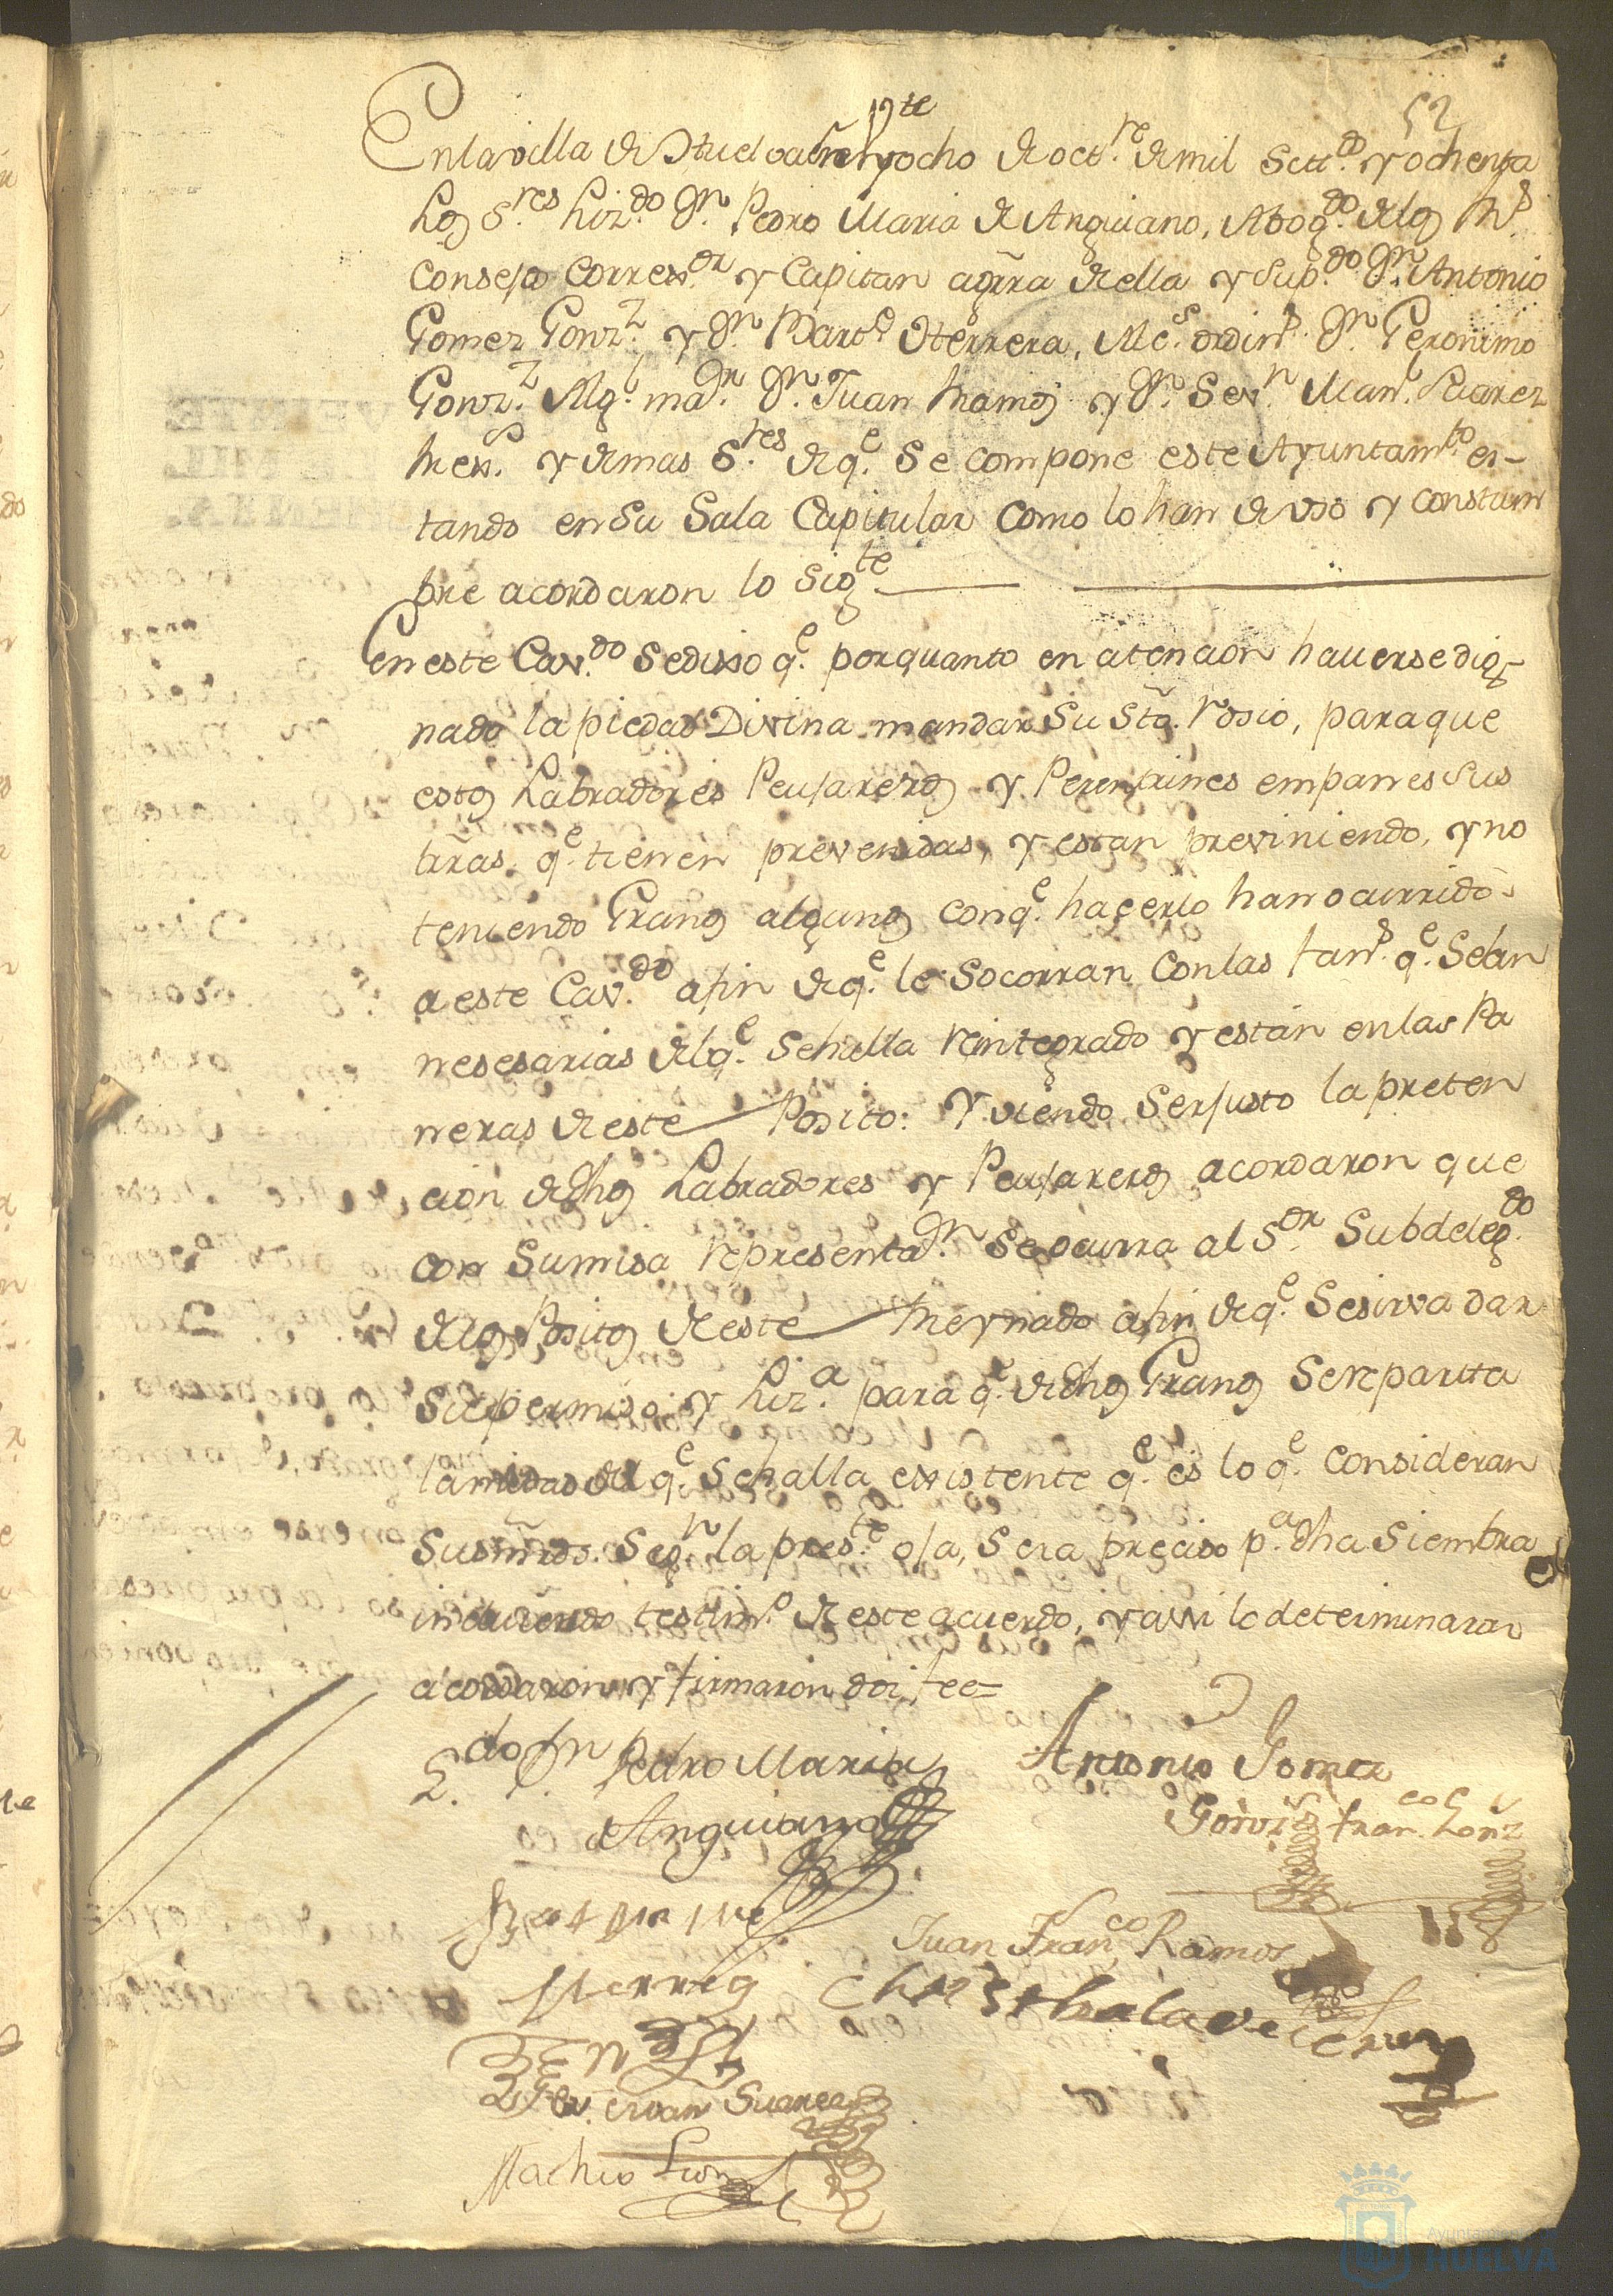 52
En la villa de Huelva en veynte y ocho de oct.re de mil Sett.do y ochenta
Los S.res Liz.do Dn. Pedro Maria de Anguiano, Abog.do de los Rs.
Consejos Correx.or y Capitan aGrra de ella y Sup.do Dn. Antonio
Gomez Gonz.z y Dn. Bart.e Herrera, Alc.s ordin.s Dn. Geronimo
Gonz.z Alg.l ma.or Dn. Juan Ramos y Dn. Sev.n Man.l Suarez
Rex.s y demas S.res de q.e Se compone este Ayuntam.to es-
tando en Su Sala Capitular como lo han de uso y constum
bre acordaron lo Sig.te
En este Cav.do Se dixo q.e por quanto en atencion haverse dig-
nado la piedad Divina mandar Su Sto. rosio, para que
estos Labradores Peujareros y Perentrines empanes Sus
trras. q.e tienen prevenidas, y estan previniendo, y no
teniendo Granos algunos con q.e hacerlo han ocurrido
a este Cav.do a fin de q.e le Socorran con las fan.s q.e Sean
nesesarias del q.e Se halla reintegrado y están en las Pa
neras de este Posito: Y viendo Ser justo la preten
cion de dhos Labradores y Peujareros acordaron que
con Sumisa representa.on Se ocurra al S.or Subdeleg.do
de los Positos de este Reynado a fin de q.e Se sirva dar
Su permiso y Liz.a para q.e de dhos Granos Se reparta
la mitad del q.e Se halla existente q.e es lo q.e consideran
Sus mrds. Seg.n la pres.te oja, Sera preciso p.a dha Siembra
incluiendo testim.o de este acuerdo, y assi lo determinaron
acordaron y firmaron doi fee=
L.do Dn Pedro Maria
de Anguiano
Antonio Gomez
Gonz.z
Fran.co Gonz
Juan Fran.co Ramos
Herrera
Man Suarez